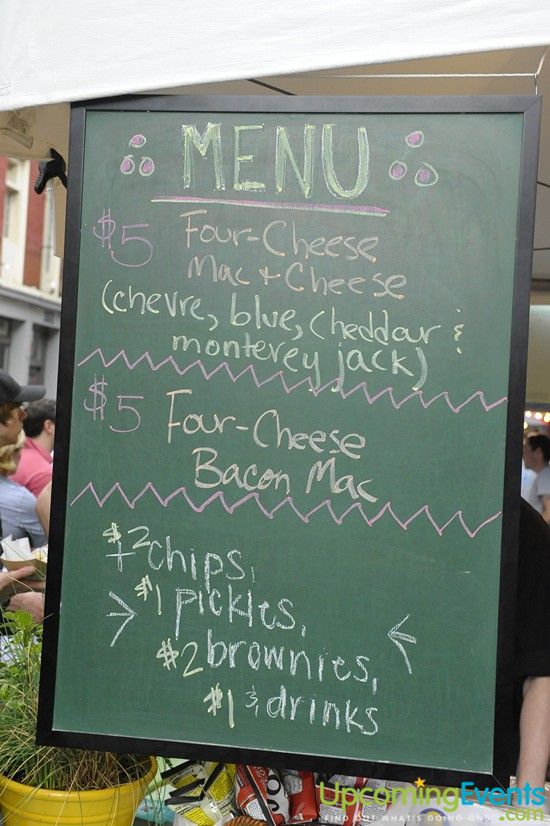 MENU
$5 Four-Cheese
Mac + Cheese
(chevre, blue, Cheddar &
monterey jack)
$5 Four-Cheese
Bacon Mac
+ $2 chips,
$1 pickles,
$2 brownies,
$1 & drinks
UpcomingEvents
FIND OUT WHAT'S GOING ON! .com